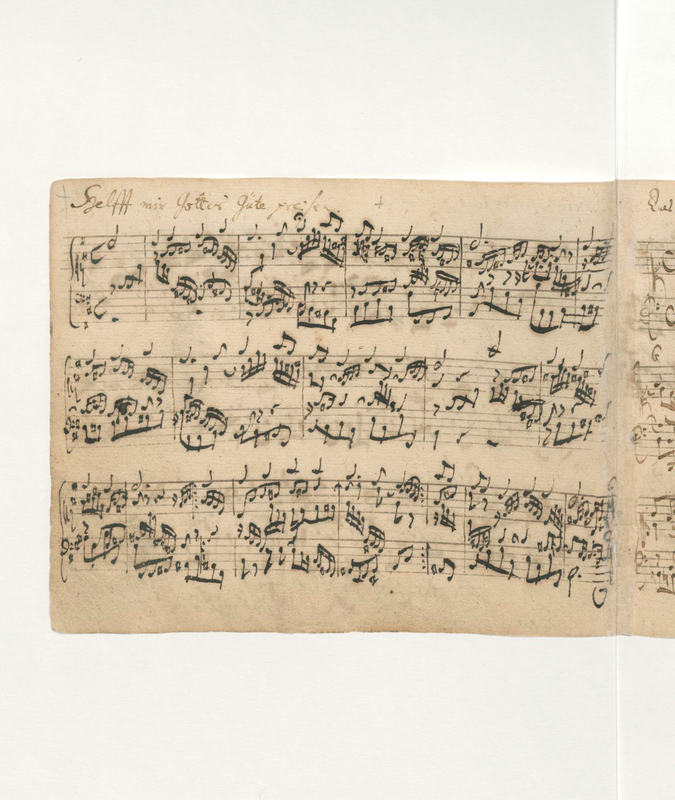 Helfft mir Gottes Güte preisen